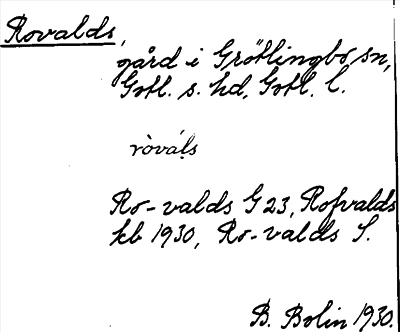 Rovalds,
gård i Grötlingbo sn,
Gotl. s. hd, Gotl. l.
ròváḷs
Ro-valds G 23, Rofvalds
kb 1930, Ro-valds S.
B. Bolin 1930.